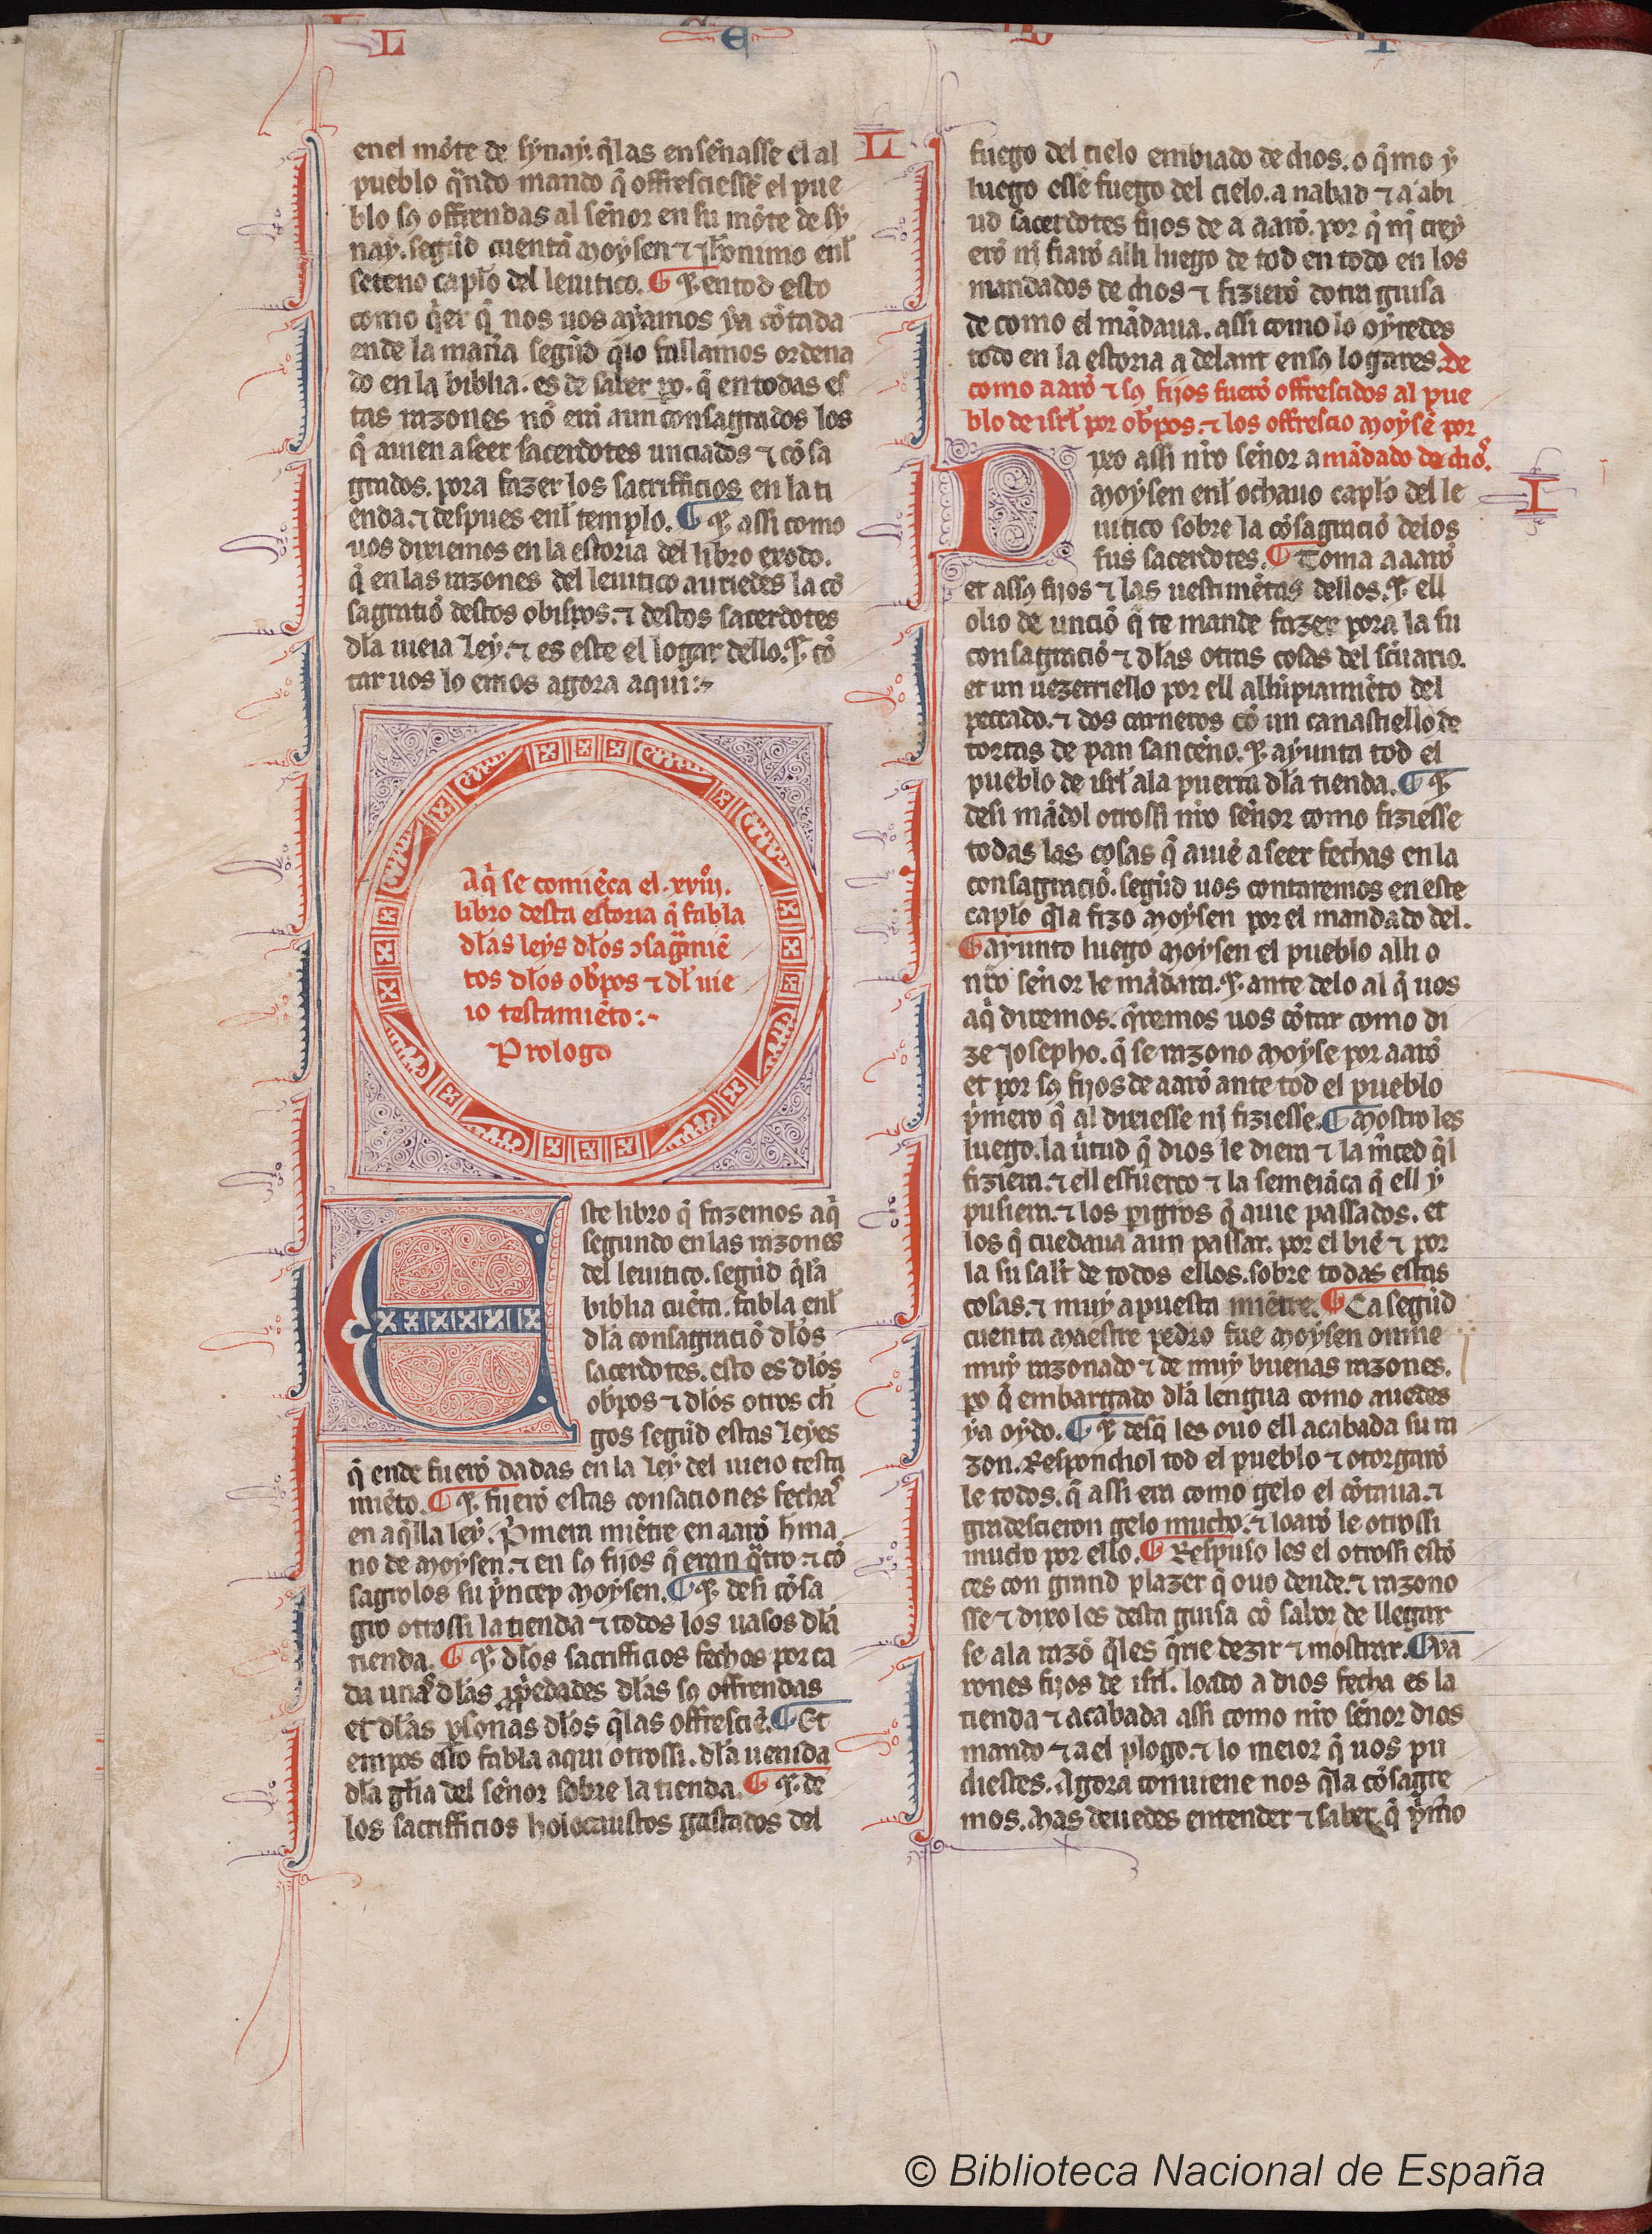 L
E
enel mõte de sẏnaẏ. q̃las enseñasse el al
pueblo q̃ndo mando q̃ offresciesse el pue
blo sꝯ offrendas al señor en su mõte de sẏ
naẏ. segũd cuentã moẏsen ⁊ jħonimo enl̃
seteno capl̃o del leuitico. ¶ ⁊ en tod esto
como q̃er q̃ nos uos aẏamos ẏa cõtada
ende la mãna segũd q̃lo fallamos ordena
do en la biblia. es de saber ꝑo. q̃ en todas es
tas razones nõ erã aun consagrados los
q̃ auien a seer sacerdotes unciados ⁊ cõsa
grados. pora fazer los sacrifficios en la ti
enda. ⁊ despues enl̃ templo. ¶ ⁊ assi como
uos dixiemos en la estoria del libro exodo.
q̃ en las razones del leuitico auriedes la cõ
sagratiõ destos obispos. ⁊ destos sacerdotes
dl̃a uieia ley. ⁊ es este el logar dello. ⁊ cõ
tar uos lo emos agora aqui:~
Aq̃ se comiẽça el .xviij.
libro desta estoria q̃ fabla
dl̃as leẏs dl̃os ↄsag̃miẽ
tos dl̃os ob̃pos ⁊ dl̃ uie
io testamiẽto:~
Prologo
Este libro q̃ fazemos aq̃
segundo en las razones
del leuitico. segũd q̃la
biblia cuẽta. fabla enl̃
dl̃a consagraciõ dl̃os
sacerdotes. esto es dl̃os
ob̃pos ⁊ dl̃os otros cl̃i
gos segũd estas leyes
q̃ ende fuerõ dadas en la ley del uieio testa
miẽto. ¶ ⁊ fuerõ estas consationes fechas
en aq̃lla leẏ. P̃mera miẽtre en aarõ h̃ma
no de moẏsen. ⁊ en sꝯ fijos q̃ eran q̃tro. ⁊ cõ
sagrolos su p̃ncep moẏsen. ¶ ⁊ desi cõsa
gro otrossi la tienda ⁊ todos los uasos dl̃a
tienda. ¶ ⁊ dl̃os sacrifficios fechos por ca
da una dl̃as ꝓpiedades dl̃as sꝯ offrendas
et dl̃as ꝑsonas dl̃os q̃las offrescie. ¶ Et
empos esto fabla aqui otrossi. dl̃a uenida
dl̃a gl̃ia del señor sobre la tienda. ¶ ⁊ de
los sacrifficios holocaustos gastados del
L
fuego del cielo embiado de dios. o q̃mo ẏ
luego esse fuego del cielo. a nabad ⁊ a abi
ud sacerdotes fijos de a aarõ. por q̃ nĩ creẏ
erõ nĩ fiarõ alli luego de tod en todo en los
mandados de dios ⁊ fizierõ dotra guisa
de como el mãdaua. assi como lo oẏredes
todo en la estoria a delant en sꝯ logares. De
como aarõ ⁊ sꝯ fijos fuerõ offrescidos al pue
blo de isrl̃ por ob̃pos. ⁊ los offrescio moẏsẽ por
Dixo assi nr̃o señor a mãdado de dios.
moẏsen enl̃ ochauo capl̃o del le
I
uitico sobre la cõsagraciõ delos
sus sacerdotes. ¶ Toma a aarõ
et assꝯ fijos ⁊ las uestimẽtas dellos. ⁊ ell
olio de unciõ q̃ te mande fazer pora la su
consagraciõ ⁊ dl̃as otras cosas del sc̃uario.
et un uezerriello por ell alimpiamiẽto del
peccado. ⁊ dos carneros cõ un canastiello de
tortas de pan sanceño. ⁊ aẏunta tod el
pueblo de isrl̃ ala puerta dl̃a tienda. ¶ ⁊
desi mãdol otrossi nr̃o señor como fiziesse
todas las cosas q̃ auiẽ a seer fechas en la
consagraciõ. segũd uos contaremos en este
capl̃o q̃la fizo moẏsen por el mandado del.
¶ aẏunto luego moẏsen el pueblo alli o
nr̃o señor le mãdara. ⁊ ante delo al q̃ uos
aq̃ diremos. q̃remos uos cõtar como di
ze Josepho. q̃ se razono moẏse por aarõ
et por sꝯ fijos de aarõ ante tod el pueblo
p̃mero q̃ al dixiesse nĩ fiziesse. ¶ mostro les
luego. la u̇tud q̃ dios le diera ⁊ la m̃ced q̃l
fiziera. ⁊ ell esfuerço ⁊ la semeiãça q̃ ell ẏ
pusiera. ⁊ los pigros q̃ auie passados. et
los q̃ cuedaua aun passar. por el biẽ ⁊ por
la su salut de todos ellos. sobre todas estas
cosas. ⁊ muẏ apuesta miẽtre. ¶ Ca segũd
cuenta maestre pedro fue moẏsen omne
muẏ razonado ⁊ de muẏ buenas razones.
po q̃ embargado dl̃a lengua como auedes
ẏa oẏdo. ¶ ⁊ desq̃ les ouo ell acabada su ra
zon. Respondiol tod el pueblo ⁊ otorgarõ
le todos. q̃ assi era como gelo el cõtaua. ⁊
gradescieron gelo mucho. ⁊ loarõ le otrossi
mucho por ello. ¶ Respuso les el otrossi estõ
ces con grand plazer q̃ ouo dende. ⁊ razono
sse ⁊ dixo les desta guisa cõ sabor de llegar
se ala razõ q̃les q̃rie dezir ⁊ mostrar. ¶ Va
rones fijos de isrl̃. loado a dios fecha es la
tienda ⁊ acabada assi como nr̃o señor dios
mando ⁊ a el plogo. ⁊ lo meior q̃ uos pu
diestes. Agora conuiene nos q̃la cõsagre
mos. mas deuedes entender ⁊ saber q̃ p̃m̃o
© Biblioteca Nacional de España